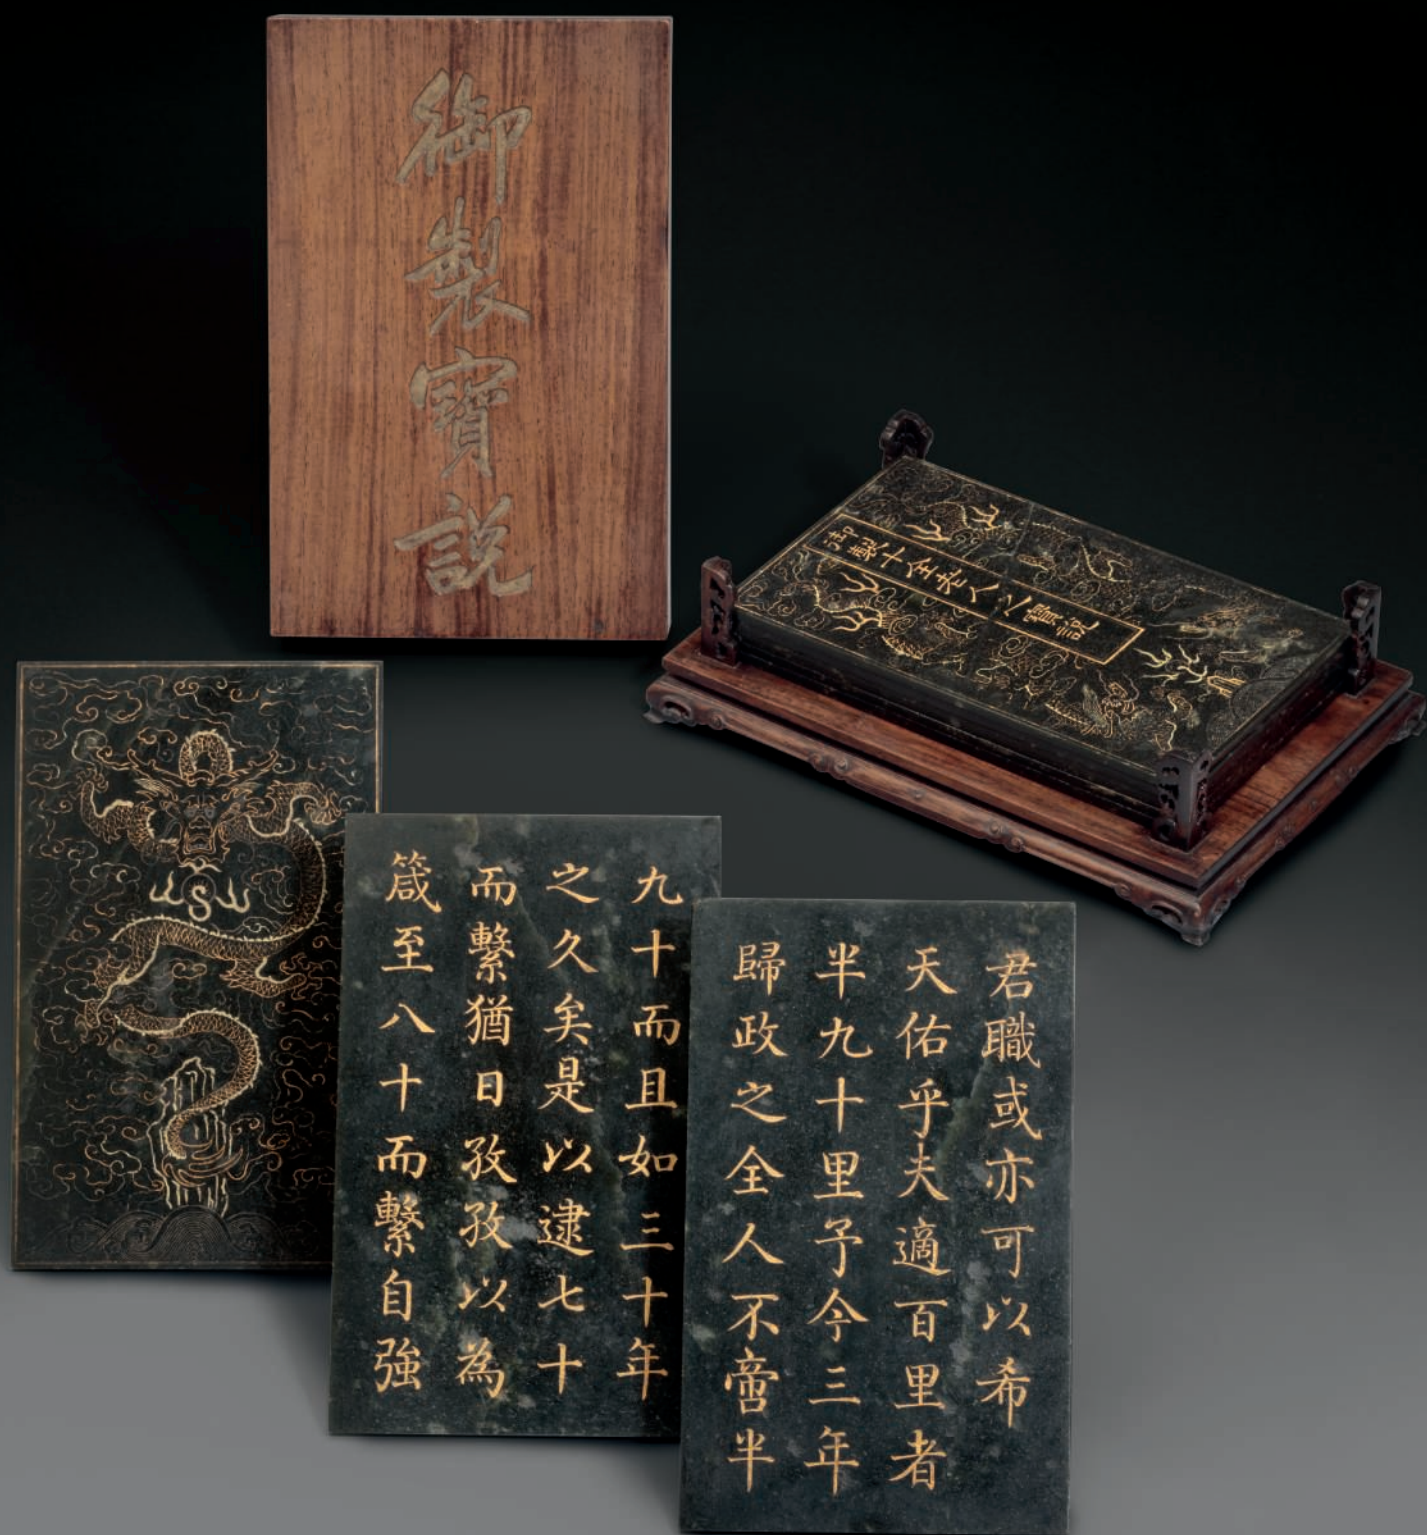 御製寶説
御製十全老人之寶説
九十而且如三十年
之久矣是以逮七十
而繫猶日孜孜以為
箴至八十而繫自強
君職或亦可以希
天佑乎夫適百里者
半九十里予今三年
歸政之全人不啻半